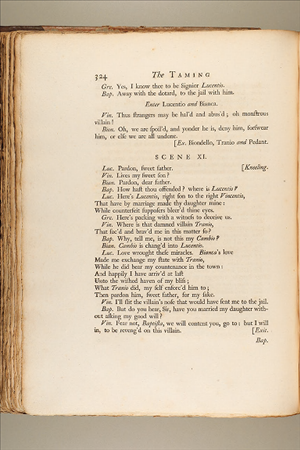 324 The TAMING
Gre. Yes, I know thee to be Signior Lucentio.
Bap. Away with the dotard, to the jail with him.
Enter Lucentio and Bianca.
Vin. Thus strangers may be hal'd and abus'd; oh monstrous
villain!
Bion. Oh, we are spoil'd, and yonder he is, deny him, forswear
him, or else we are all undone.
[Ex. Biondello, Tranio and Pedant.
SCENE XI.
Luc. Pardon, sweet father. [Kneeling.
Vin. Lives my sweet son?
Bian. Pardon, dear father.
Bap. How hast thou offended? where is Lucentio?
Luc. Here's Lucentio, right son to the right Vincentio,
That have by marriage made thy daughter mine:
While counterfeit supposers bleer'd thine eyes.
Gre. Here's packing with a witness to deceive us.
Vin. Where is that damned villain Tranio,
That fac'd and brav'd me in this matter so?
Bap. Why, tell me, is not this my Cambio?
Bian. Cambio is chang'd into Lucentio.
Luc. Love wrought these miracles. Bianca's love
Made me exchange my state with Tranio,
While he did bear my countenance in the town:
And happily I have arriv'd at last
Unto the wished haven of my bliss;
What Tranio did, my self enforc'd him to;
Then pardon him, sweet father, for my sake.
Vin. I'll slit the villain's nose that would have sent me to the jail.
Bap. But do you hear, Sir, have you married my daughter with-
out asking my good will?
Vin. Fear not, Baptista, we will content you, go to: but I will
in, to be reveng'd on this villain. [Exit.
Bap.